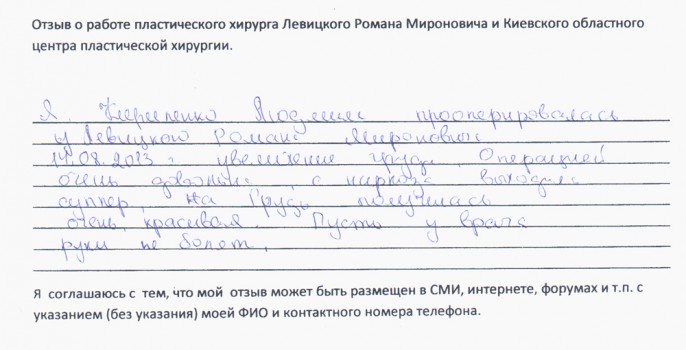 Отзыв о работе пластического хирурга Левицкого Романа Мироновича и Киевского областного
центра пластической хирургии.
Я, Людмила прооперировалась
у Левицкого Романа Мироновича
14.08.2013 г увеличение груди. Операцией
очень довольна, с наркоза выходила
суппер, На Грудь получилась
очень красивая. Пусть у врача
руки не болят,
Я соглашаюсь с тем, что мой отзыв может быть размещен в СМИ, интернете, форумах и т.п. с
указанием (без указания) моей ФИО и контактного номера телефона.